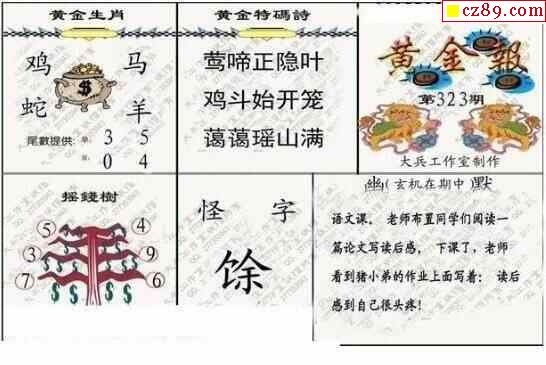 cz89.com
黄金生肖
鸡 马
蛇 羊
尾數提供: 单: 3 5
双: 0 4
黄金特碼詩
莺啼正隐叶
鸡斗始开笼
蔼蔼瑶山满
黄金報
第323期
大兵工作室制作
摇錢樹
5 4
3 9
7 6
怪 字
馀
幽(玄机在期中)默
语文课，老师布置同学们阅读一
篇论文写读后感，下课了，老师
看到猪小弟的作业上面写着：读后
感到自己很头疼！